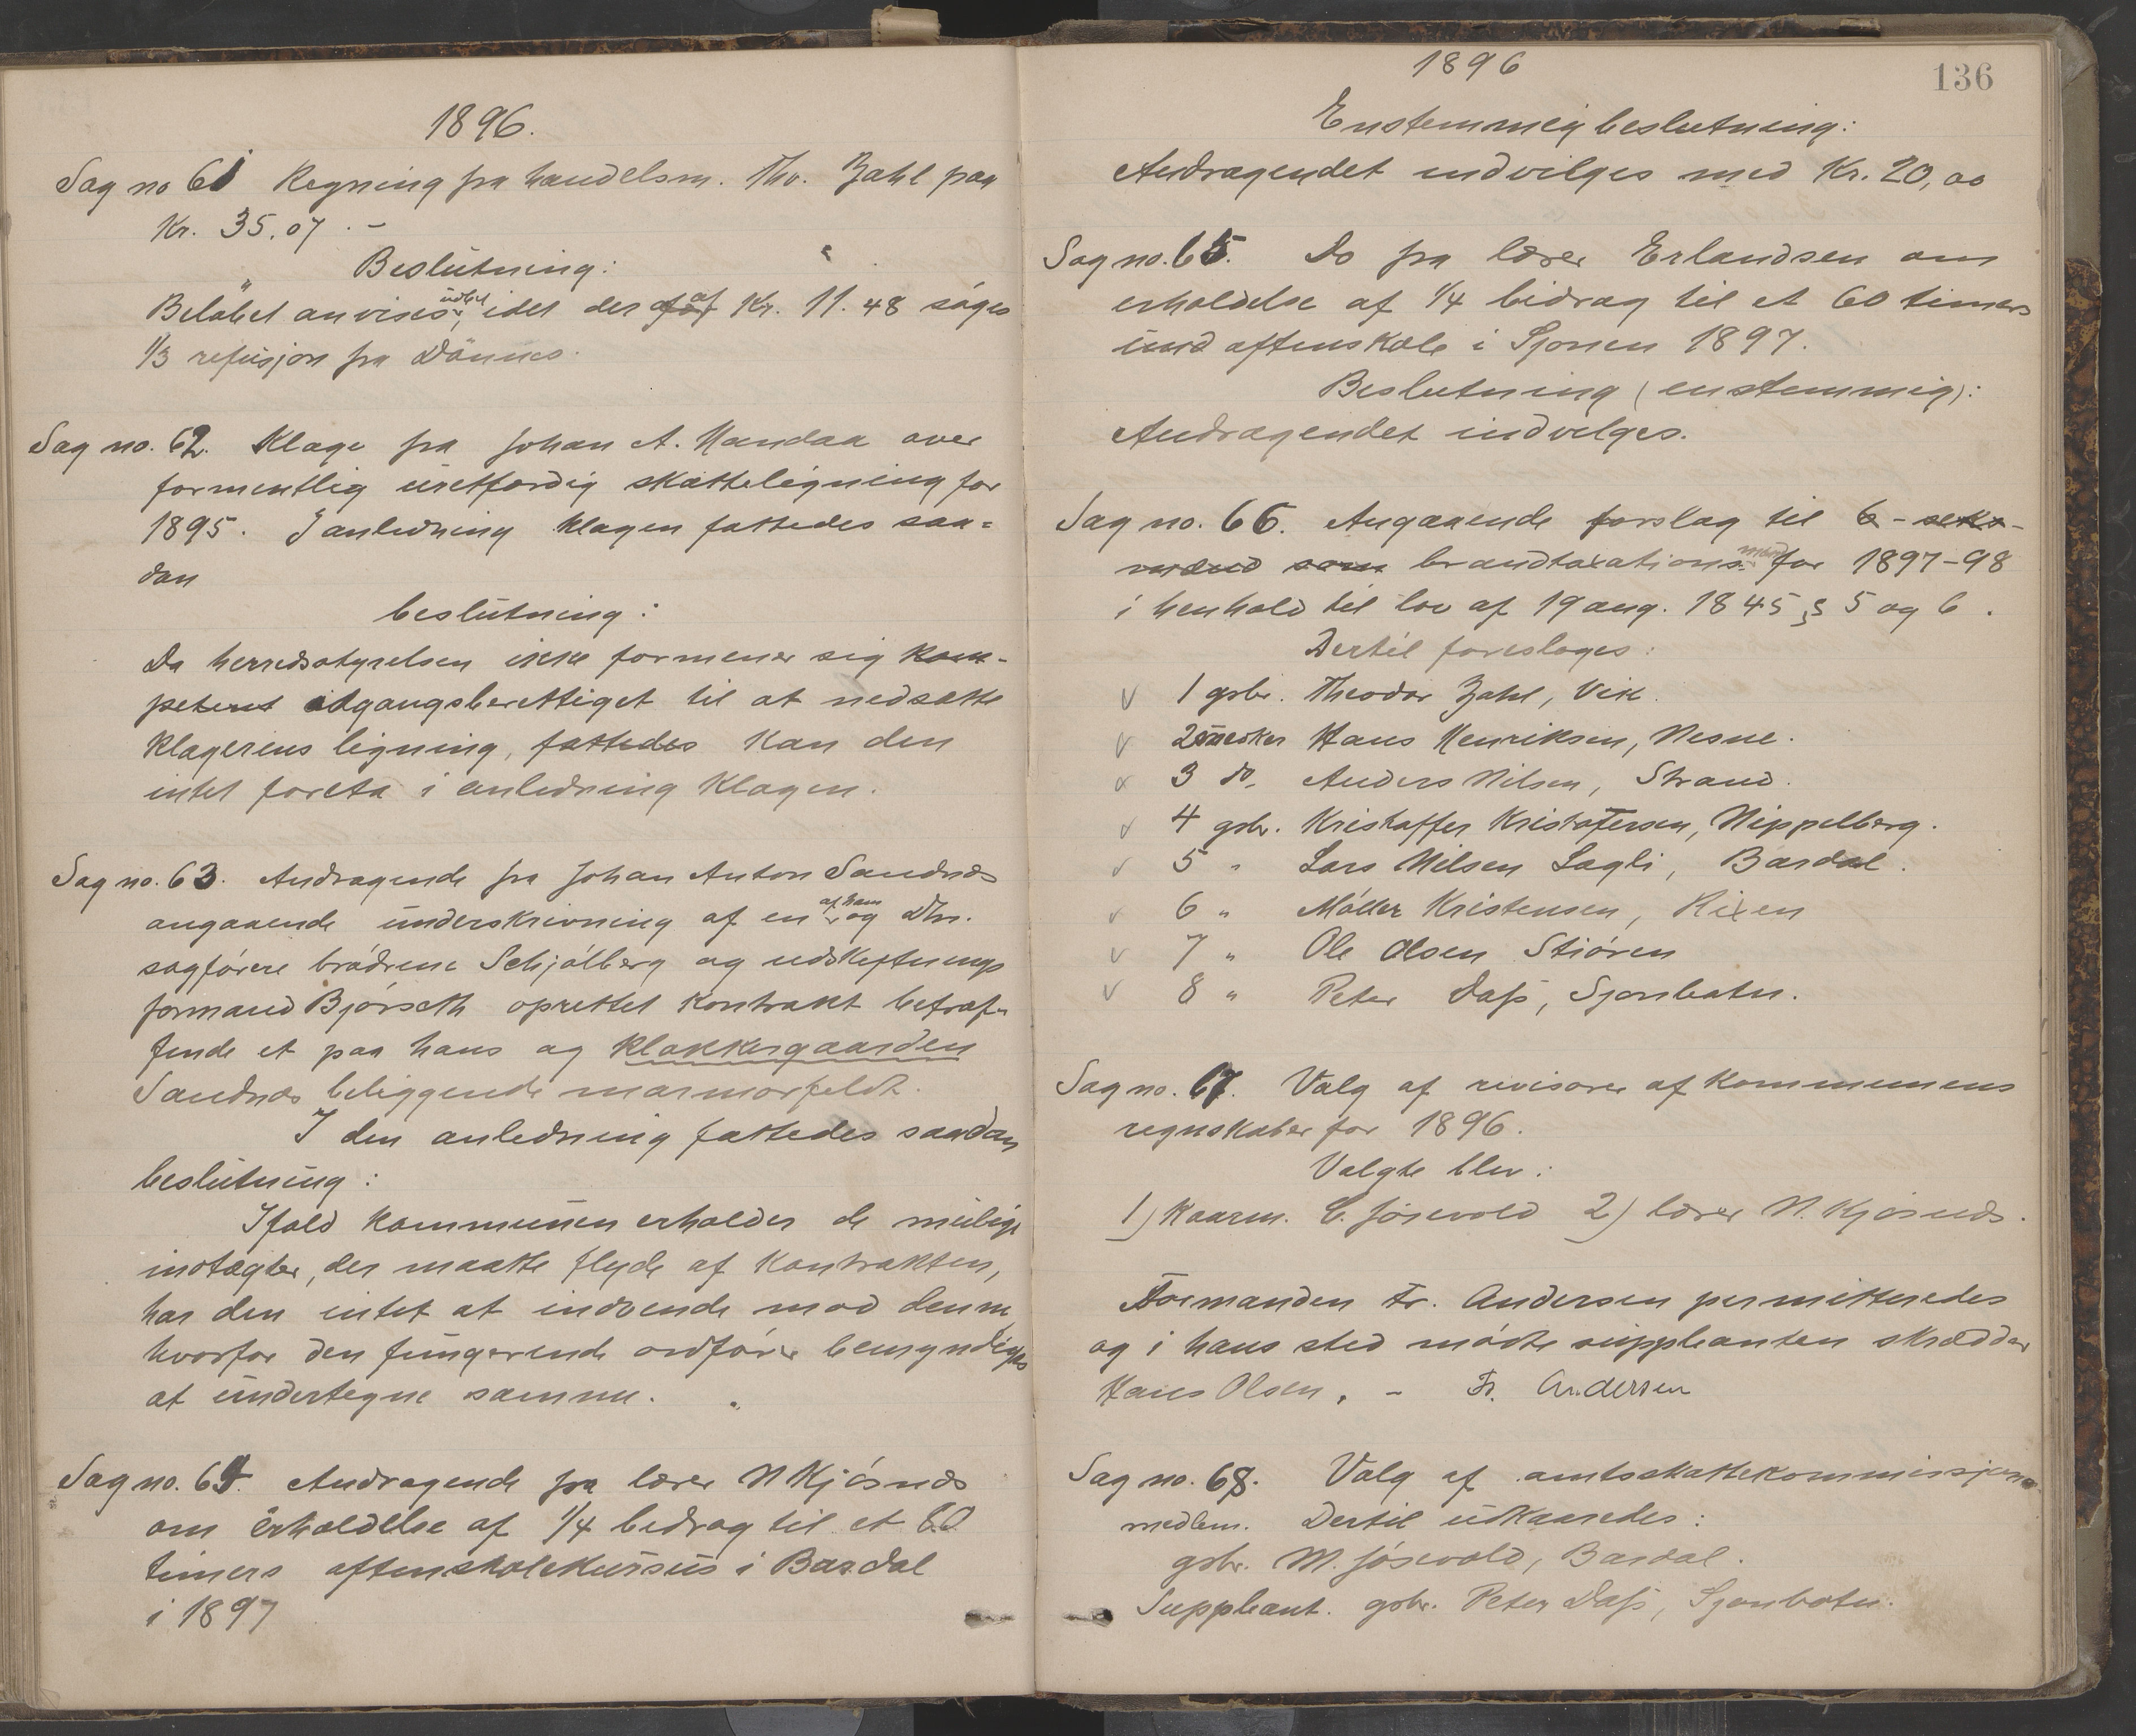 1896.
Sag no 61 Regning fra handelsm. Thv. Zahl paa
Kr. 35.07. –
Beslutning:
Beløbet anvises, idet der af Kr. 11.48 søges
1/3 refusjon fra Dønnes.
Sag no. 62. Klage fra Johan A. Handaa over
formentlig uretfærdig skatteligning for
1895. I anledning klagen fattedes saa=
dan
beslutning:
Da herredsstyrelsen ikke formener sig kom-
petent adgangsberettiget til at nedsætte
klagerens ligning, fattedes kan den
intet foreta i anledning klagen.
Sag no. 63. Andragende fra Johan Anton Sandnæs
angaaende underskrivning af en af ham og Dhrr.
sagførere brødrene Schjølberg og udskiftnings
formand Bjørseth oprettet kontrakt betræf-
fende et paa hans og klokkergaarden
Sandnæs beliggende marmorfeldt.
I den anledning fattedes saadan
beslutning:
Ifald kommunen erholder de mulige
indtægter, der maatte flyde af kontrakten,
har den intet at indvende mod denne
hvorfor den fungerende ordfører bemyndiges
at undertegne samme.
Sag no. 64. Andragende fra lærer N Kjøsnæs
om erholdelse af 1/4 bidrag til et 60
timers aftenskolekursus i Bardal
i 1897
1896
136
Enstemmig beslutning:
Andragendet indvilges med Kr. 20,00
Sag no. 65. Do fra lærer Erlandsen om
erholdelse af 1/4 bidrag til et 60 timers
und aftenskole i Sjonen 1897.
Beslutning (enstemmig):
Andragendet indvilges.
Sag no. 66. Angaaende forslag til 6 - seks-
mænd som brandtaxationsmænd for 1897-98
i henhold til lov af 19 aug. 1845 § 5 og 6.
Dertil foreslages:
1 gbr. Theodor Zahl, Vik.
2 Hans Henriksen, Nesne.
3 do. Anders Nilsen, Strand.
4 gbr. Kristoffer Kristofersen, Nippelberg.
5 " Lars Nilsen Lagli, Bardal.
6 " Møller Kristensen, Rixen
7 " Ole Olsen Stiøren
8 " Peter Dass, Sjonbotn.
Sag no. 67. Valg af revisorer af kommunens
regnskaber for 1896.
Valgte blev:
1) Kaarm. C. Jøsevold 2) lærer N. Kjøsnæs.
Formanden Fr. Andersen permitteredes
og i hans sted mødte suppleanten skrædder
Hans Olsen. – Fr. Andersen
Sag no. 68. Valg af amtsskattekommissjons
medlem. Dertil udkaaredes:
gbr. M. Jøsevold, Bardal.
Suppleant. gbr. Peter Dass, Sjonbotn.